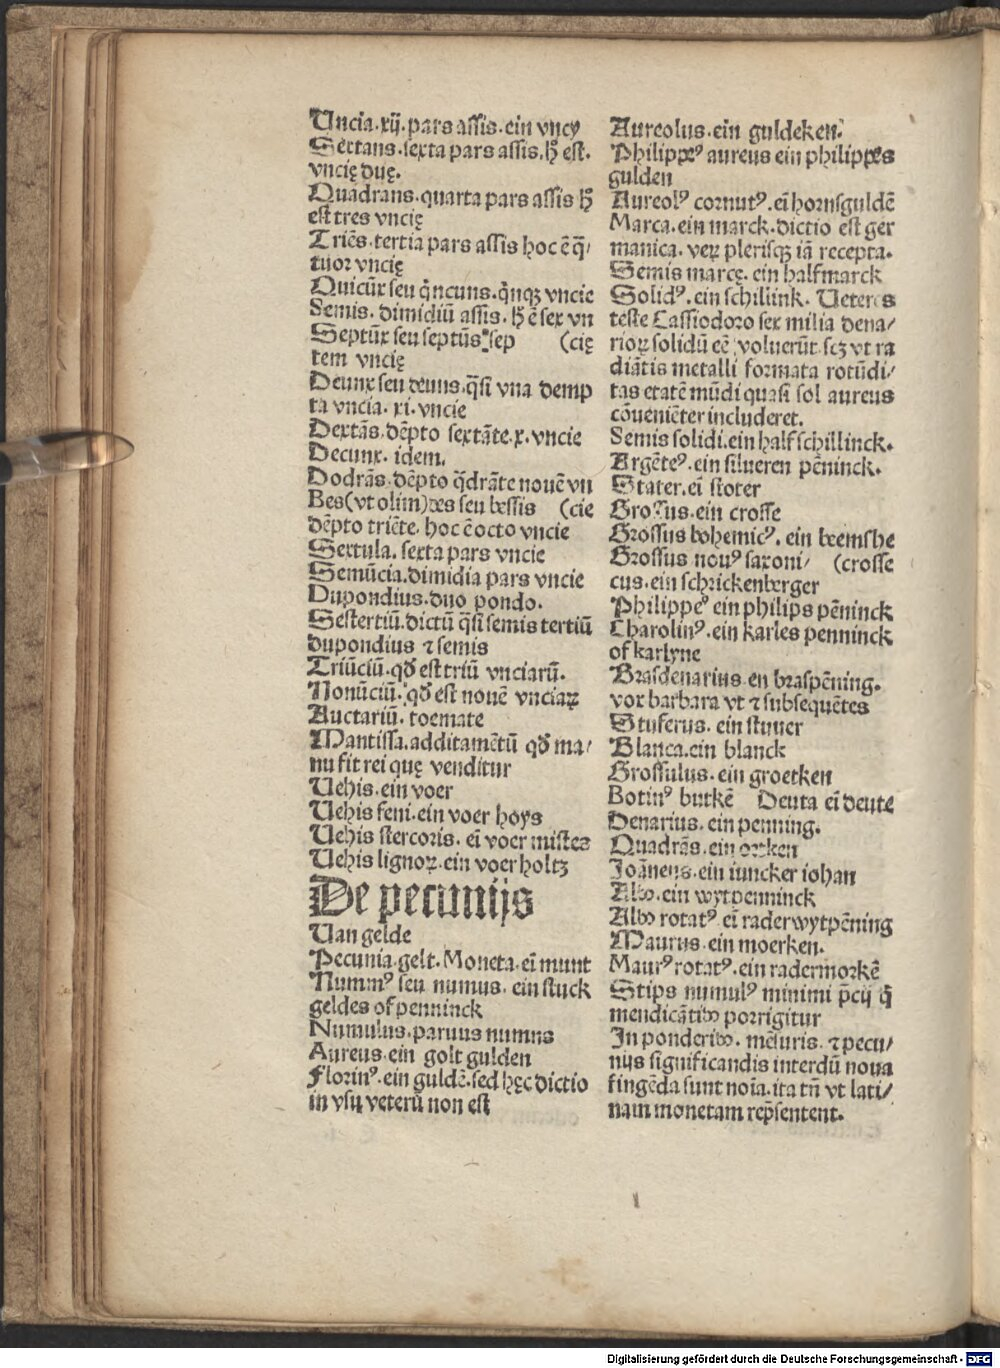 Uncia.xij.pars assis.ein vncy
Sextans.sexta pars assis.hͦ est.
vncię duę.
Quadrans.quarta pars assis hͦ
est tres vncię
Triẽs.tertia pars assis hoc ẽ q̃/
tuor vncię
Quicũx seu q̃ncuns.q̃nqꝫ vncie
Semis. dimidiũ assis. hͦ ẽ sex vn
Septũx seu septũs. sep (cię
tem vncię
Deunx seu deuns.q̃si vna demp
ta vncia. xi. vncie
Dextãs.dẽpto sextãte.x.vncie
Decunx. idem.
Dodrãs.dẽpto q̃drãte nouẽ vn
Bes(vt olim)des seu bessis (cie
dẽpto triẽte. hoc ẽ octo vncie
Sextula. sexta pars vncie
Semũcia.dimidia pars vncie
Dupondius.duo pondo.
Sestertiũ.dictũ q̃si semis tertiũ
dupondius ⁊ semis
Triũciũ.qđ est triũ vnciarũ.
Nonũciũ. qđ est nouẽ vnciaꝝ
Auctariũ. toemate
Mantissa.additamẽtũ qđ ma/
nu fit rei quę venditur
Uehis.ein voer
Uehis feni.ein voer hoys
Uehis stercoris. eĩ voer mistes
Uehis lignoꝝ.ein voer holtz
De pecunijs
Uan gelde
Pecunia.gelt.Moneta.eĩ munt
Nummꝰ seu numus. ein stuck
geldes of penninck
Numulus.paruus numus
Aureus.ein golt gulden
Florinꝰ.ein guldẽ.sed hęc dictio
in vsu veterũ non est
Aureolus.ein guldeken.
Philippeꝰ aureus ein philippes
gulden
Aureolꝰ cornutꝰ. eĩ hornsguldẽ
Marca.ein marck.dictio est ger
manica. veꝝ plerisqꝫ iã recepta.
Semis marcę. ein halfmarck
Solidꝰ.ein schillink. Ueteres
teste Cassiodoro sex milia dena/
rioꝝ solidũ eẽ voluerũt.scꝫ vt ra
diãtis metalli formata rotũdi/
tas etatẽ mũdi quasi sol aureus
cõueniẽter includeret.
Semis solidi.ein half schillinck.
Argẽteꝰ.ein silueren pẽninck.
Stater.eĩ stoter
Grossus.ein crosse
Grossus bohemicꝰ. ein beemshe
Grossus nouꝰ saxoni/ (crosse
cus.ein schrickenberger
Philippeꝰ ein philips pẽninck
Charolinꝰ.ein karles penninck
of karlyne
Brasdenarius.en braspẽning.
vox barbara vt ⁊ subsequẽtes
Stuferus. ein stuuer
Blanca.ein blanck
Grossulus.ein groetken
Botinꝰ butkẽ Deuta eĩ deute
Denarius.ein penning.
Quadrãs.ein ortken
Joãneus.ein iuncker iohan
Albꝰ.ein wytpenninck
Albꝰ rotatꝰ eĩ raderwytpẽning
Maurus.ein moerken.
Maurꝰ rotatꝰ.ein radermorkẽ
Stips numulꝰ minimi p̃cij q̃
mendicãtibꝰ porrigitur
In ponderibꝰ. mẽsuris. ⁊ pecu/
nijs significandis interdũ noua
fingẽda sunt noĩa.ita tñ vt lati/
nam monetam rep̃sentent.
Digitalisierung gefördert durch die Deutsche Forschungsgemeinschaft - DFG